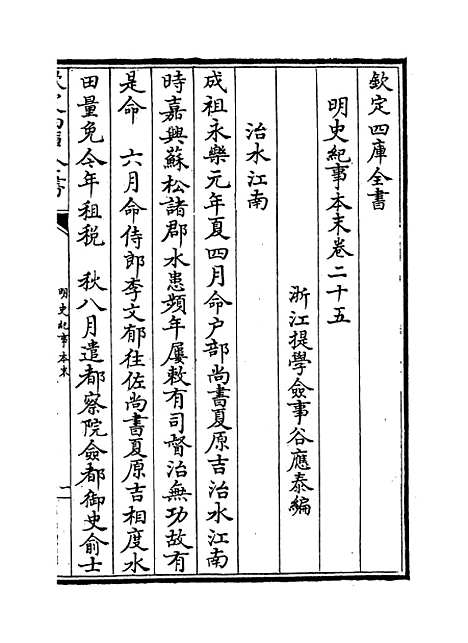 欽定四庫全書
明史紀事本末卷二十五
浙江提學僉事谷應泰編
治水江南
成祖永樂元年夏四月命户部尚書夏原吉治水江南
時嘉興蘇松諸郡水患頻年屢敕有司督治無功故有
是命　六月命侍郎李文郁往佐尚書夏原吉相度水
田量免今年租税　秋八月遣都察院僉都御史俞士
明史紀事本末